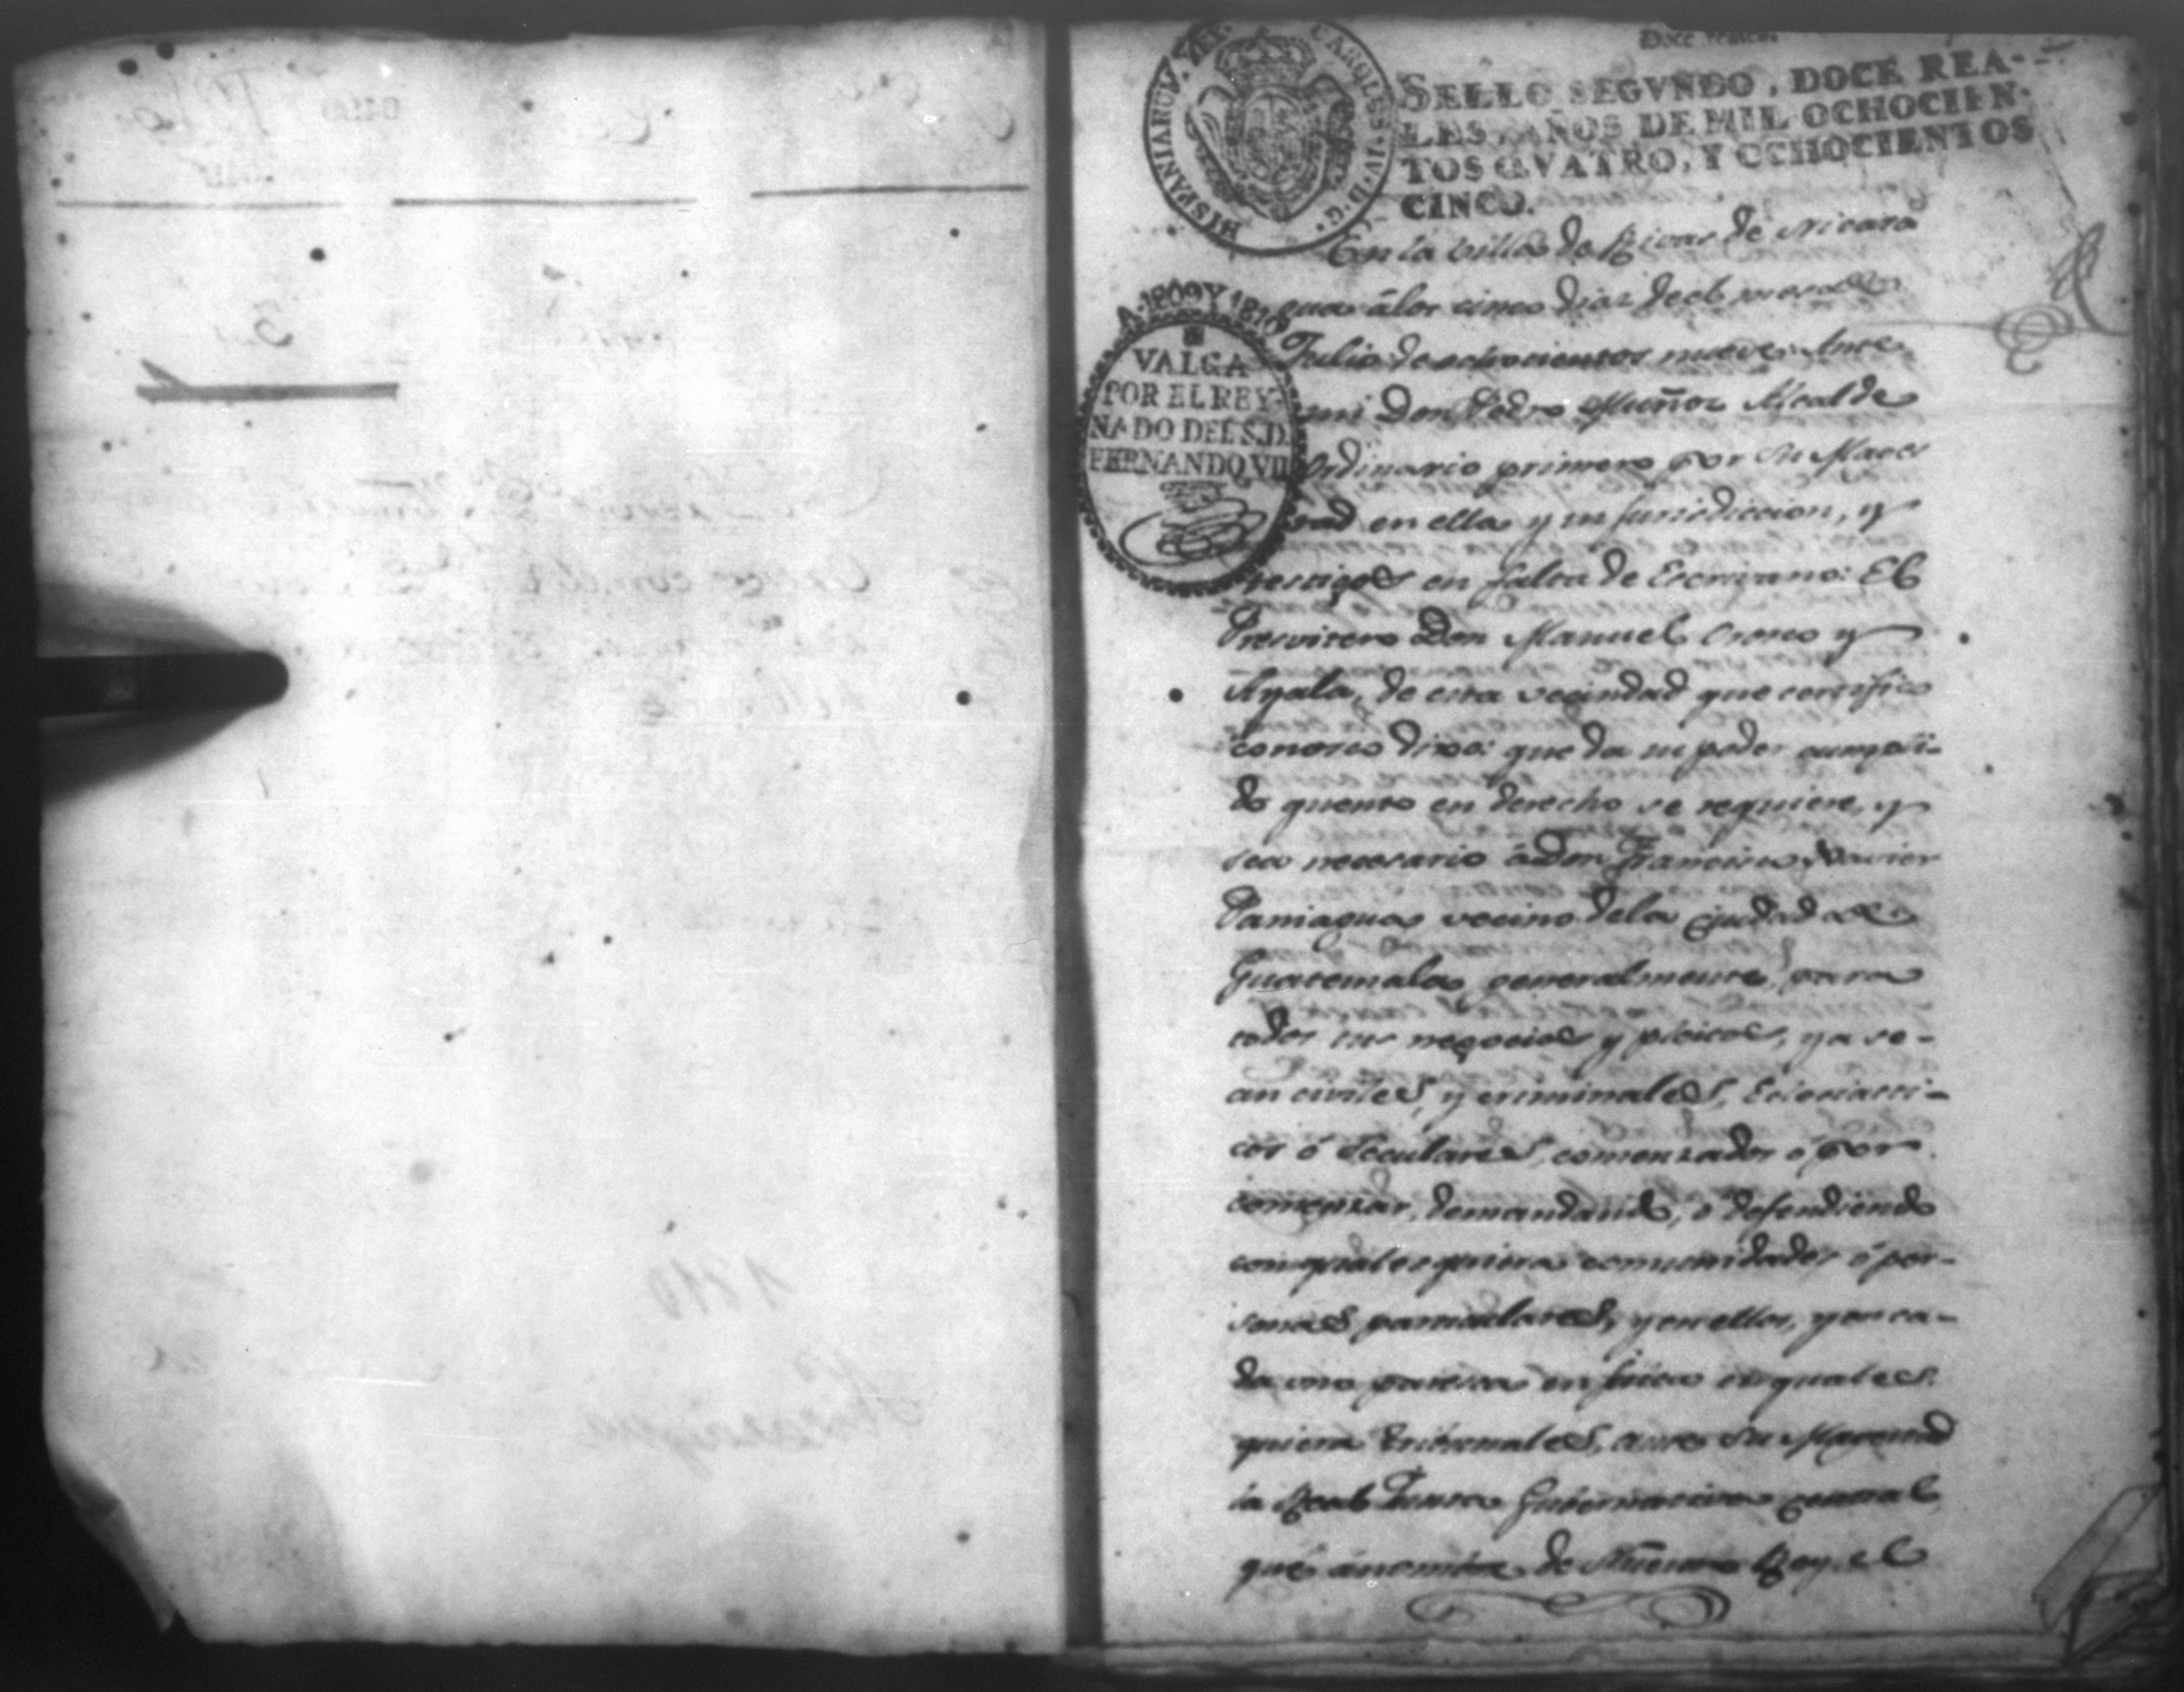 Doce reales
HISPANIARUM. REX. CAROLUS. IV. D. G.
SELLO SEGVNDO, DOCE REA-
LES, AÑOS DE MIL OCHOCIEN-
TOS QVATRO, Y OCHOCIENTOS
CINCO.
A. 1809 Y 1810
VALGA
POR EL REY-
NADO DEL S. D.
FERNANDO VII
En la villa de Rivas de Nicara
gua á los cinco dias del mes de
Julio de ochocientos nueve. Ante
mi Don Pedro Muñoz Alcalde
Ordinario primero por Su Mages
tad en ella y su jurisdiccion, y
testigos en falta de Escrivano: El
Presvitero Don Manuel Orosco y
Ayala, de esta vecindad que certifico
conosco dixo: que da su poder cumpli-
do quento en derecho se requiere, y
sea necesario á Don Francisco Xavier
Paniagua vecino de la Ciudad de
Guatemala generalmente, para
todos sus negocios y pleitos, ya se-
an civiles, y criminales, Eclesiasti-
cos ó Seculares, comenzados ó por
comenzar, demandando, ó defendiendo
con qualesquiera comunidades ó per-
sonas particulares, y en ellos, y en ca-
da uno paresca en juicio en quales
quiera Tribunales, ante Su Magestad
la Real Junta Gubernativa central
que á nombre de Nuestro Rey el
1810
Nicaragua